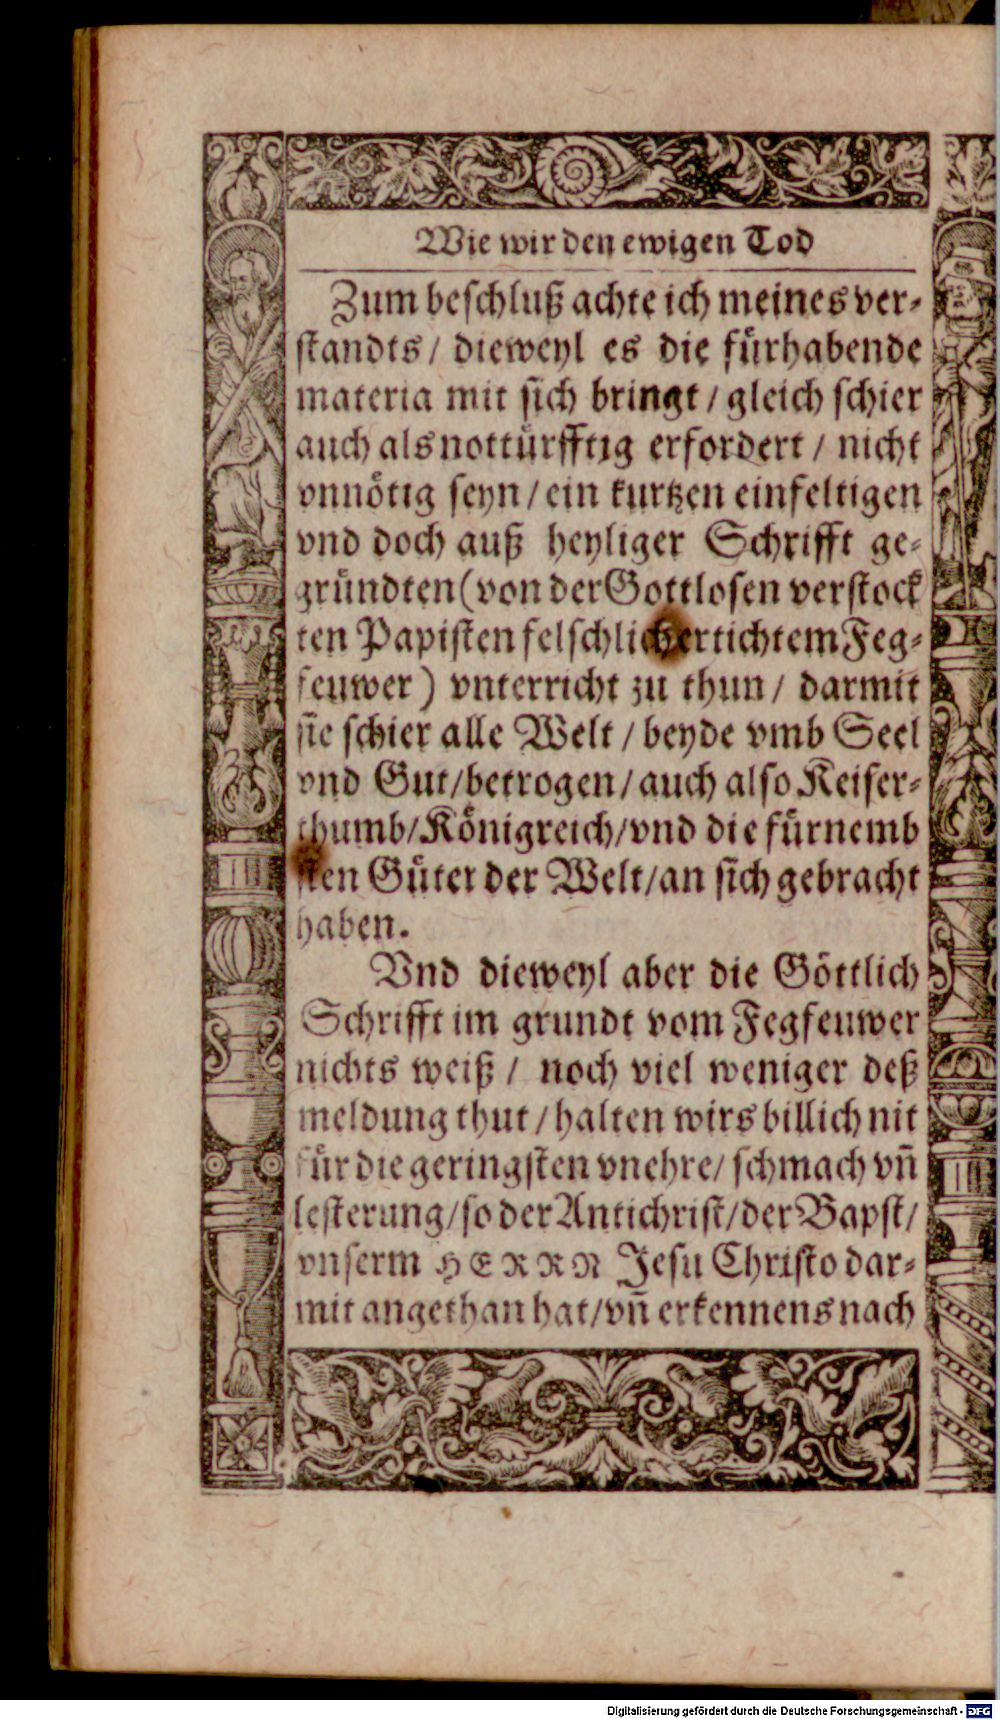 Wie wir den ewigen Tod
Zum beschluß achte ich meines ver-
standts / dieweyl es die fürhabende
materia mit sich bringt / gleich schier
auch als nottürfftig erfordert / nicht
vnnötig seyn / ein kurtzen einfeltigen
vnd doch auß heyliger Schrifft ge-
gründten (von der Gottlosen verstock
ten Papisten felschlich ertichtem Feg-
feuwer) vnterricht zu thun / darmit
sie schier alle Welt / beyde vmb Seel
vnd Gut / betrogen / auch also Keiser-
thumb / Königreich / vnd die fürnemb
sten Güter der Welt / an sich gebracht
haben.
Vnd dieweyl aber die Göttlich
Schrifft im grundt vom Fegfeuwer
nichts weiß / noch viel weniger deß
meldung thut / halten wirs billich nit
für die geringsten vnehre / schmach vñ
lesterung / so der Antichrist / der Bapst /
vnserm HERRN Jesu Christo dar-
mit angethan hat / vñ erkennens nach
Digitalisierung gefördert durch die Deutsche Forschungsgemeinschaft - DFG